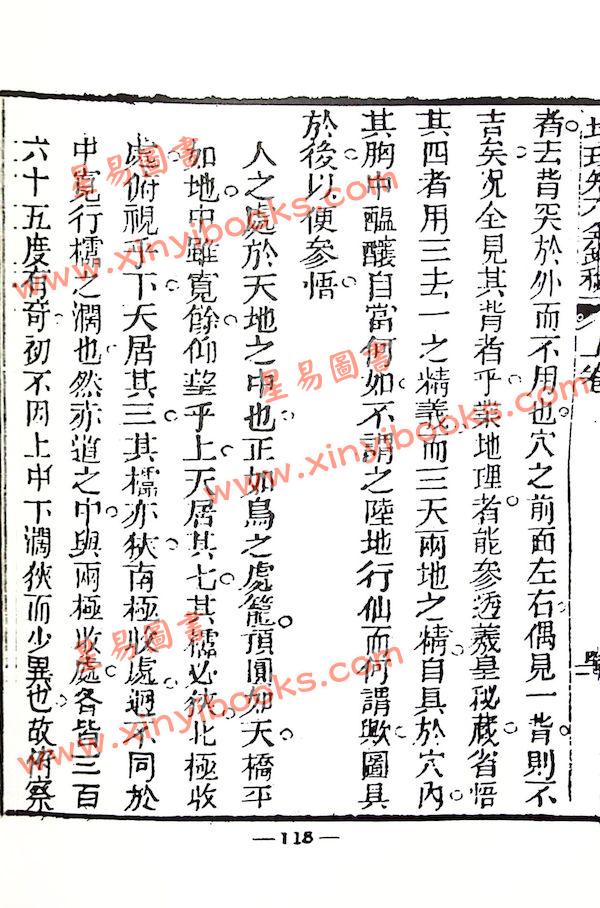 者去背突於外而不用也穴之前面左右偶見一背則不
吉矣况全見其背者乎業地理者能參透羲皇秘蔵省悟
其四者用三去一之精義而三天兩地之精自具於穴內
其胸中醞釀自當何如不謂之陸地行仙而何謂歟圖具
於後以便參悟
人之處於天地之中也正如鳥之處籠頂圓如天橋平
如地中雖寬餘仰望乎上天居其七其檽必狹北極收
處俯視乎下天居其三其檽亦狹南極收處迥不同於
中寬行檽之濶也然赤道之中與兩極收處各皆三百
六十五度有奇初不因上中下濶狹而少異也故術察
上卷
— 118 —
星易圖書
www.xinyibooks.com
星易圖書
www.xinyibooks.com
星易圖書
www.xinyibooks.com